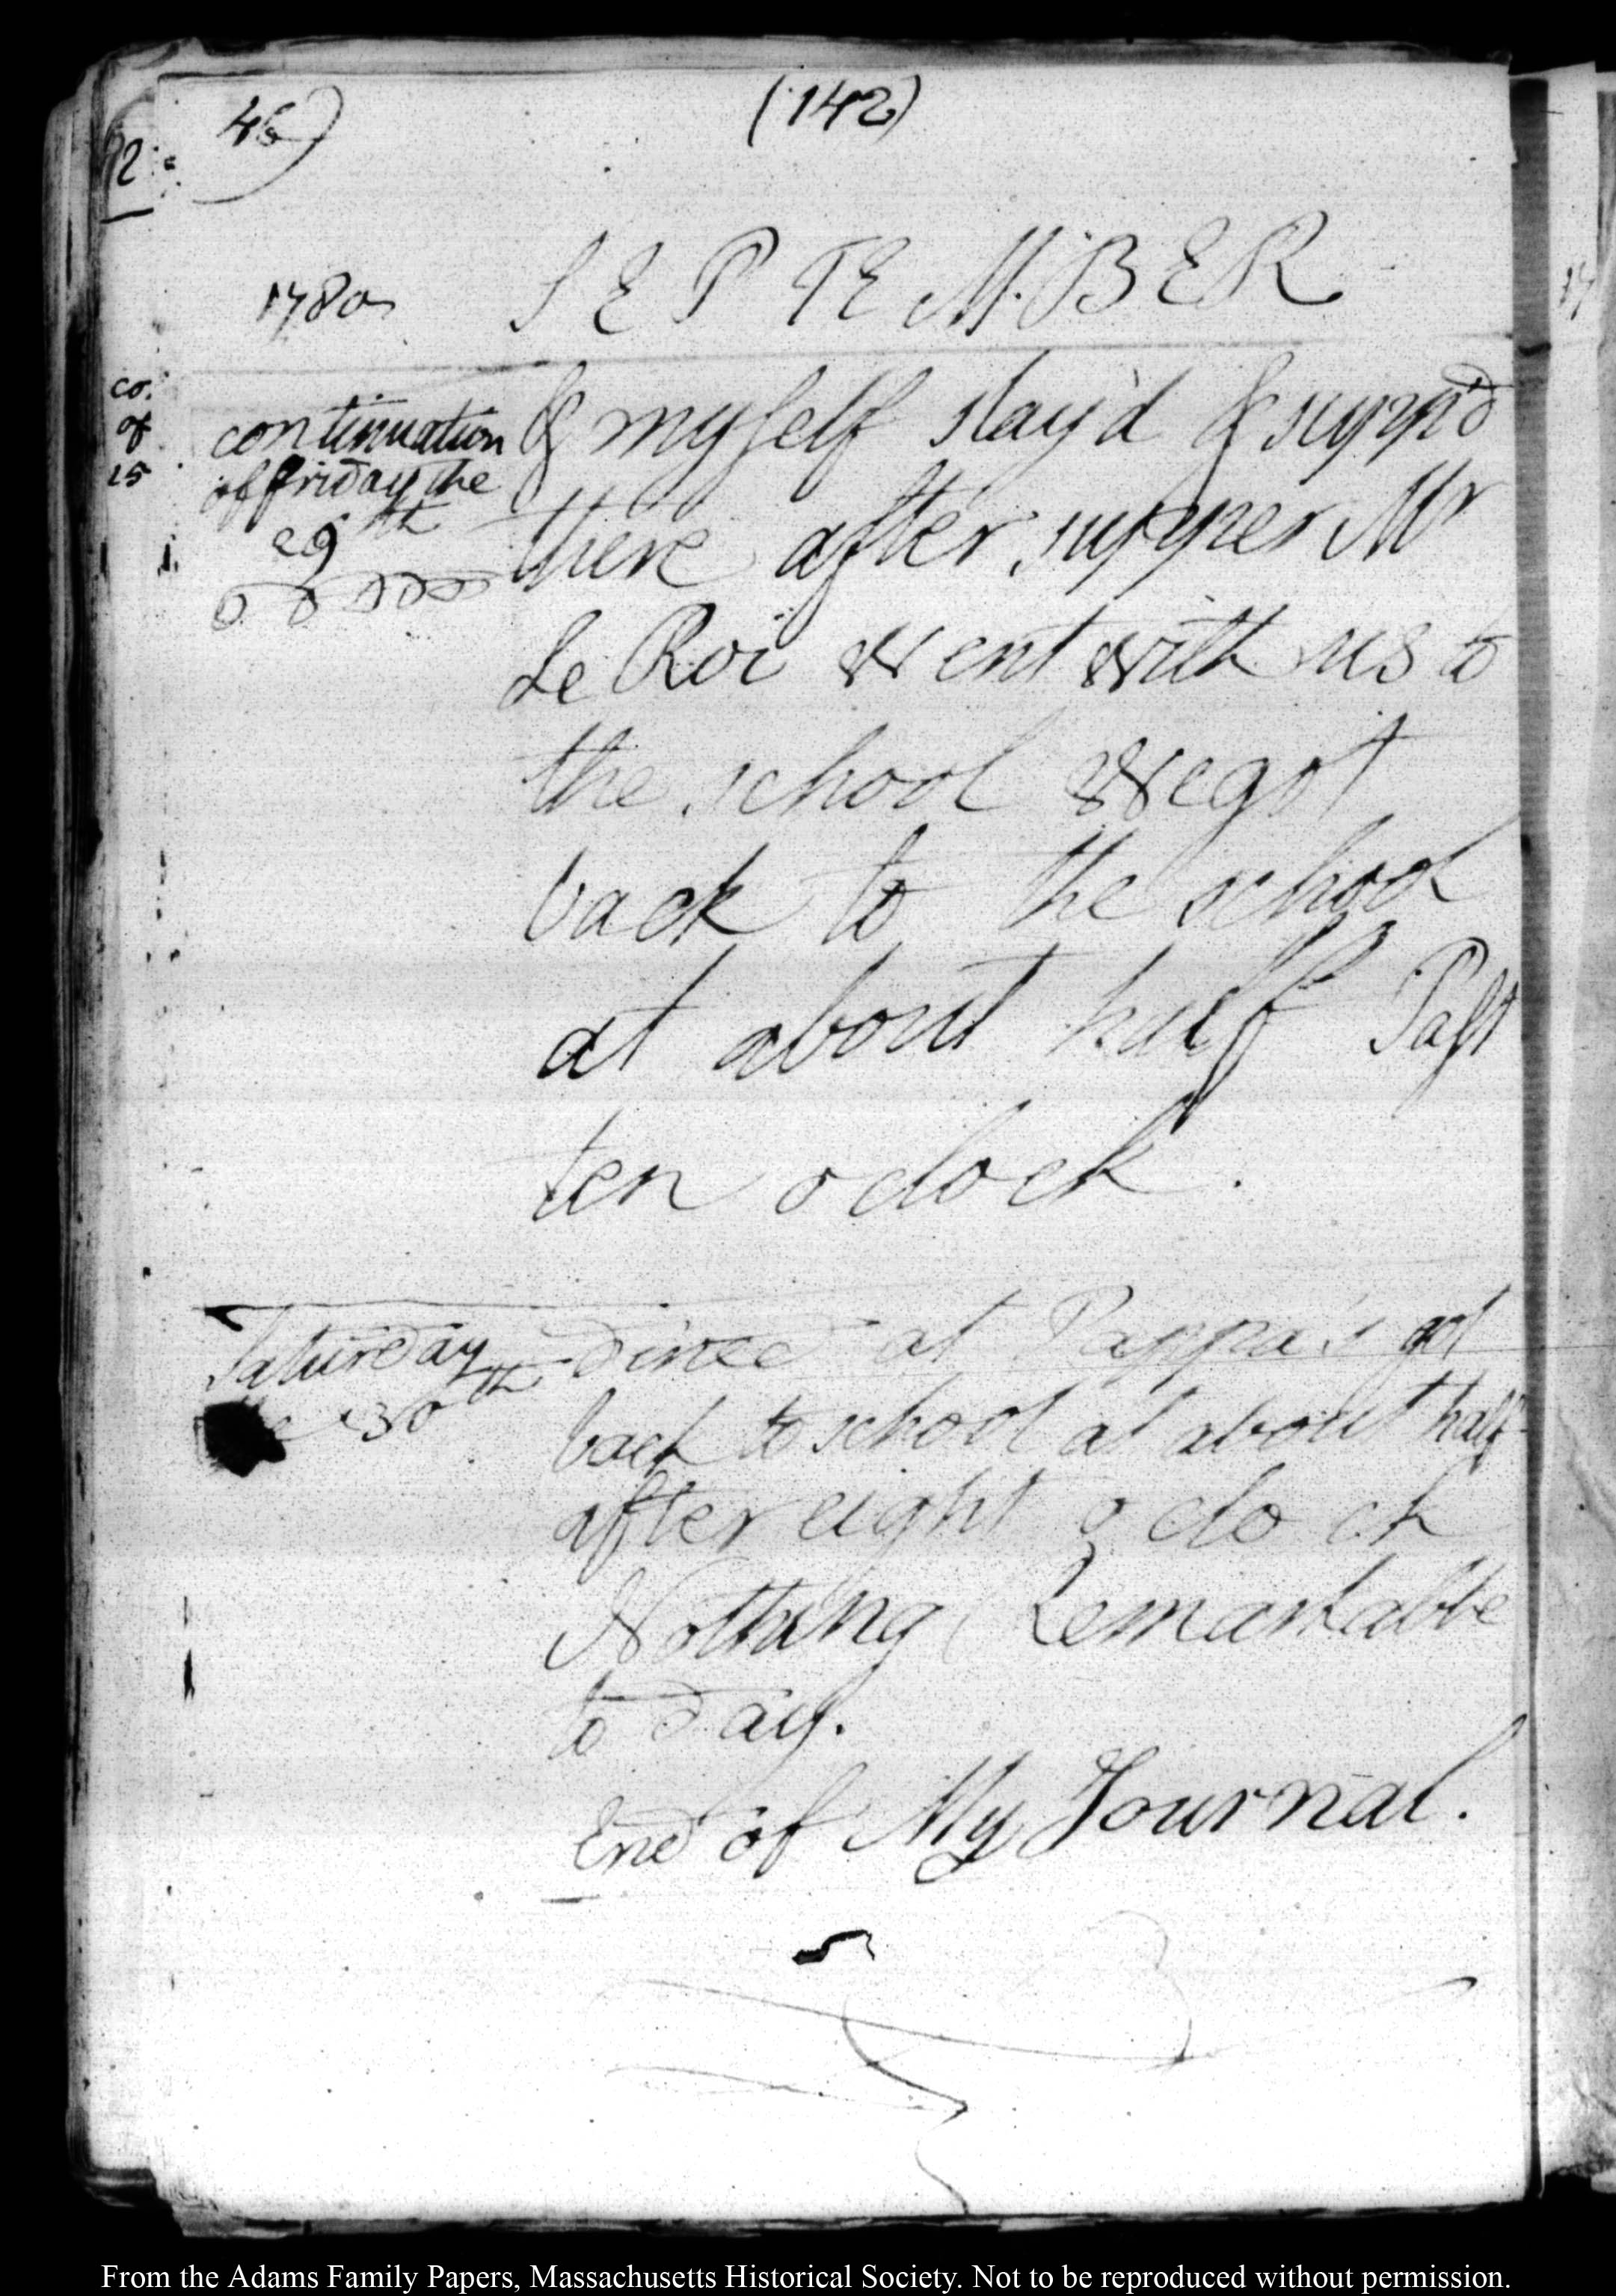 (142)
46)
1780
SEPTEMBER
continuation
of friday the
29th
& myself stay'd & supp'd
there after supper Mr
Le Roi Went with us to
the school We got
back to the school
at about half Past
ten oclock.
Saturday
30th
dined at Pappa's got
back to school at about half
after eight oclock
Nothing Remarkable
to day.
End of My Journal.
co.
of
25
From the Adams Family Papers, Massachusetts Historical Society. Not to be reproduced without permission.